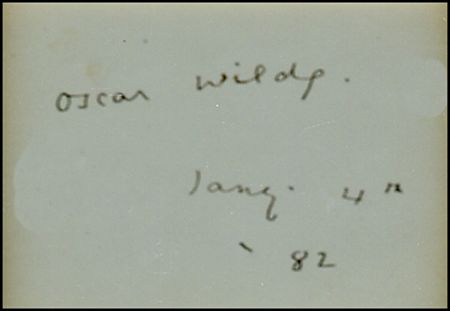 Oscar Wilde.
Jany. 4th
'82